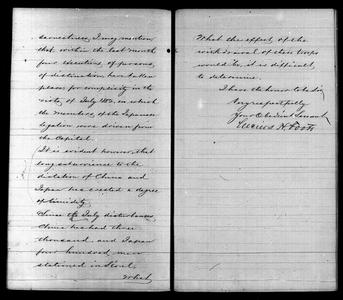 sensitiveness, I may mention
that within the last month
four executions, of persons,
of distinction, have taken
place, for complicity in the
riots, of July 1882, in which
the Members, of the Japanese
Legation, were driven from
the Capital.
It is evident however, that
long subservience to the
dictation of China and
Japan has created a degree
of timidity.
Since the July disturbances
China has had three
thousand, and Japan
four hundred, men
stationed in Seoul.
What
What the effect, of the
withdrawal of these troops
would be, it is difficult,
to determine.
I have the honor to be Sir
Very respectfully
Your Obedient Servant
Lucius H. Foote